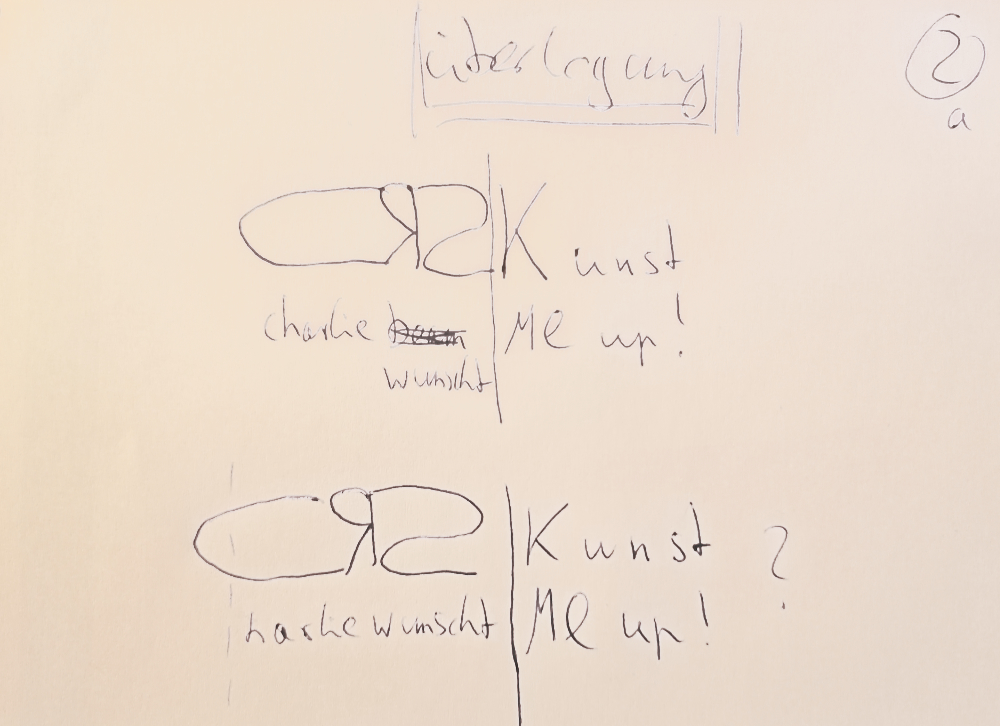 überlegung
2
a
CЯƧ Kunst
charlie Me up!
wunscht
CЯƧ Kunst ?
harlie wunscht Me up!